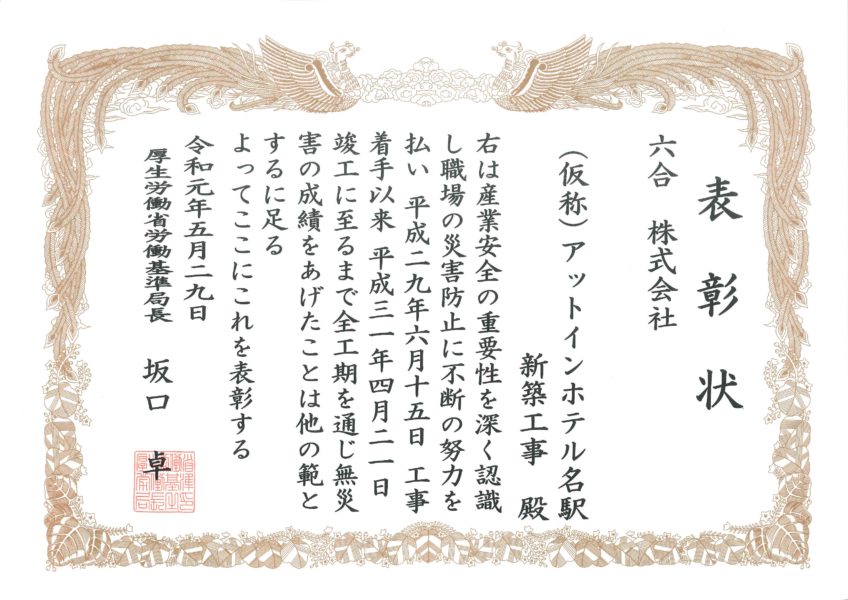 表彰状
六合　株式会社
（仮称）アットインホテル名駅
新築工事　殿
右は産業安全の重要性を深く認識
し職場の災害防止に不断の努力を
払い　平成二九年六月十五日　工事
着手以来　平成三一年四月二一日
竣工に至るまで全工期を通じ無災
害の成績をあげたことは他の範と
するに足る
よってここにこれを表彰する
令和元年五月二九日
厚生労働省労働基準局長　坂口　卓